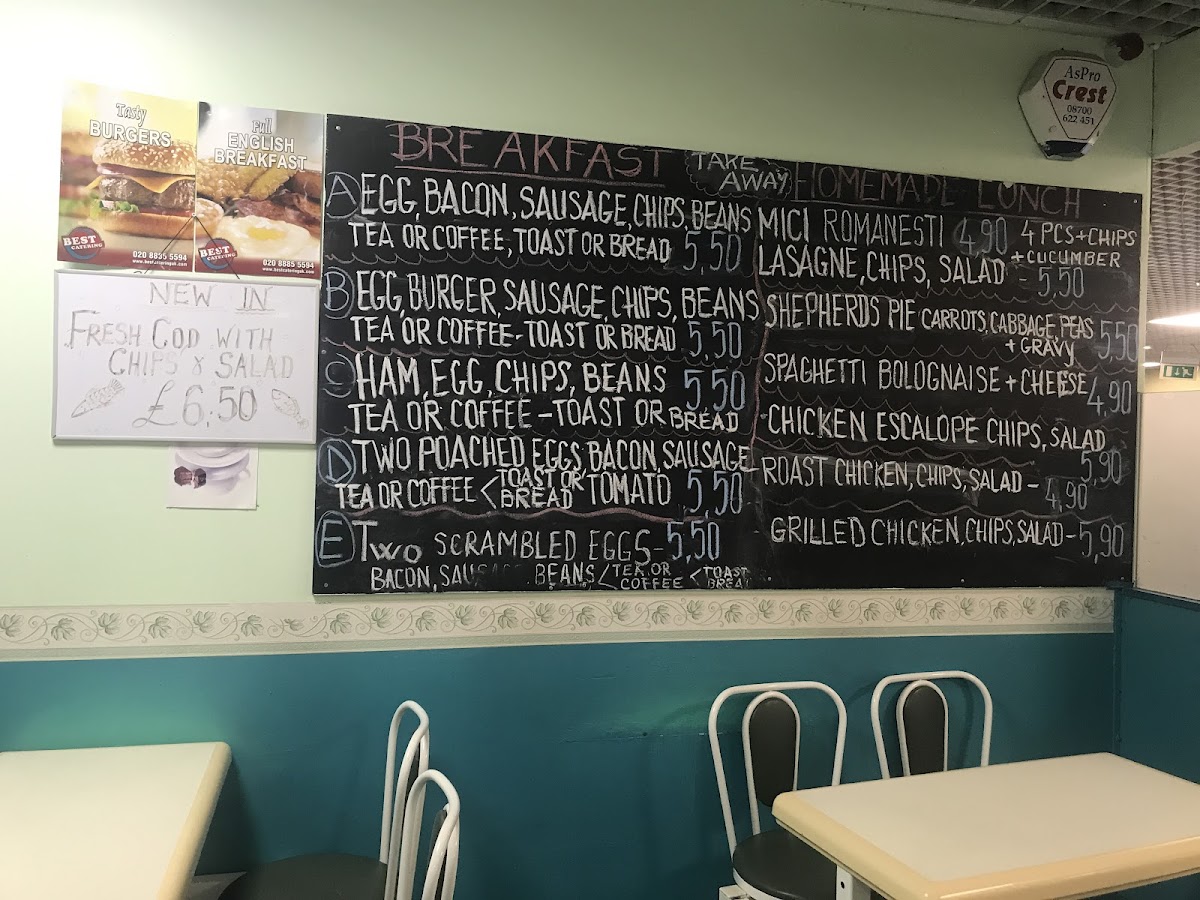 Tasty
BURGERS
BEST
CATERING
020 8885 5594
www.bestcateringuk.com
Full
ENGLISH
BREAKFAST
BEST
CATERING
020 8885 5594
www.bestcateringuk.com
NEW IN
FRESH COD WITH
CHIPS & SALAD
£6,50
BREAKFAST
A EGG, BACON, SAUSAGE, CHIPS, BEANS
TEA OR COFFEE, TOAST OR BREAD 5,50
B EGG, BURGER, SAUSAGE, CHIPS, BEANS
TEA OR COFFEE - TOAST OR BREAD 5,50
C HAM, EGG, CHIPS, BEANS 5,50
TEA OR COFFEE - TOAST OR BREAD
D TWO POACHED EGGS, BACON, SAUSAGE
TEA OR COFFEE < TOAST OR BREAD TOMATO 5,50
E TWO SCRAMBLED EGGS - 5,50
BACON, BEANS < TEA OR COFFEE < TOAST
TAKE
AWAY
HOMEMADE LUNCH
MICI ROMANESTI 4,90 4 PCS + CHIPS
+ CUCUMBER
LASAGNE, CHIPS, SALAD - 5,50
SHEPHERDS PIE CARROTS, CABBAGE, PEAS
+ GRAVY 5,50
SPAGHETTI BOLOGNAISE + CHEESE 4,90
CHICKEN ESCALOPE CHIPS, SALAD
5,90
ROAST CHICKEN, CHIPS, SALAD - 4,90
GRILLED CHICKEN, CHIPS, SALAD - 5,90
AsPro
Crest
08700
622 451